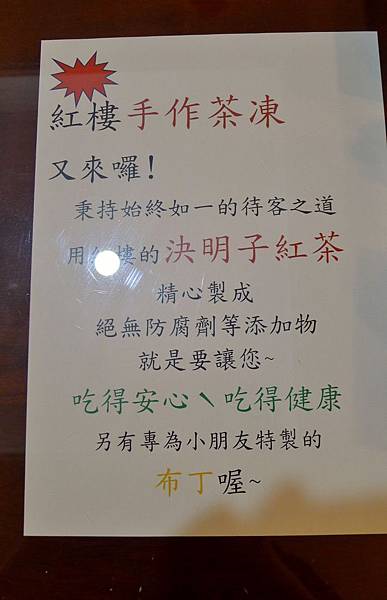 紅樓手作茶凍
又來囉!
秉持始終如一的待客之道
用紅樓的決明子紅茶
精心製成
絕無防腐劑等添加物
就是要讓您~
吃得安心、吃得健康
另有專為小朋友特製的
布丁喔~